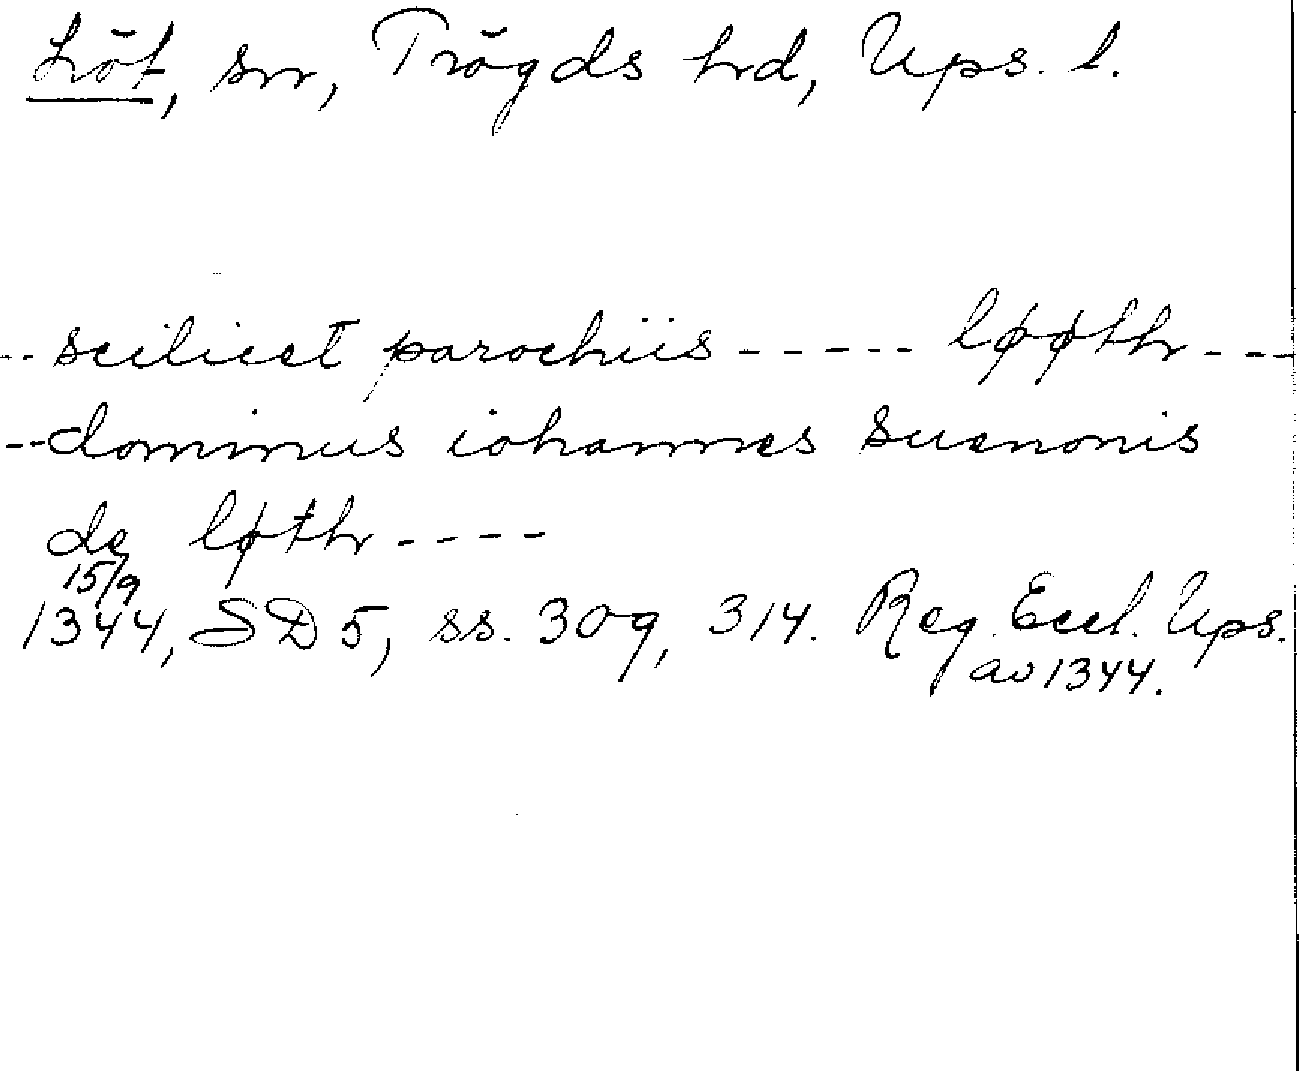 Löt, sn, Trögds hrd, Ups. l.
-- scilicet parochiis ------ løøth ---
-- dominus iohannes suenonis
de løth ----
15/9
1344, SD 5, ss. 309, 314. Reg. Eccl. Ups.
av 1344.